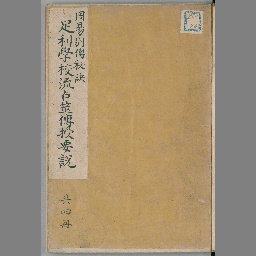 周易別傳秘訣
足利學校流占筮傳授要説
共四冊